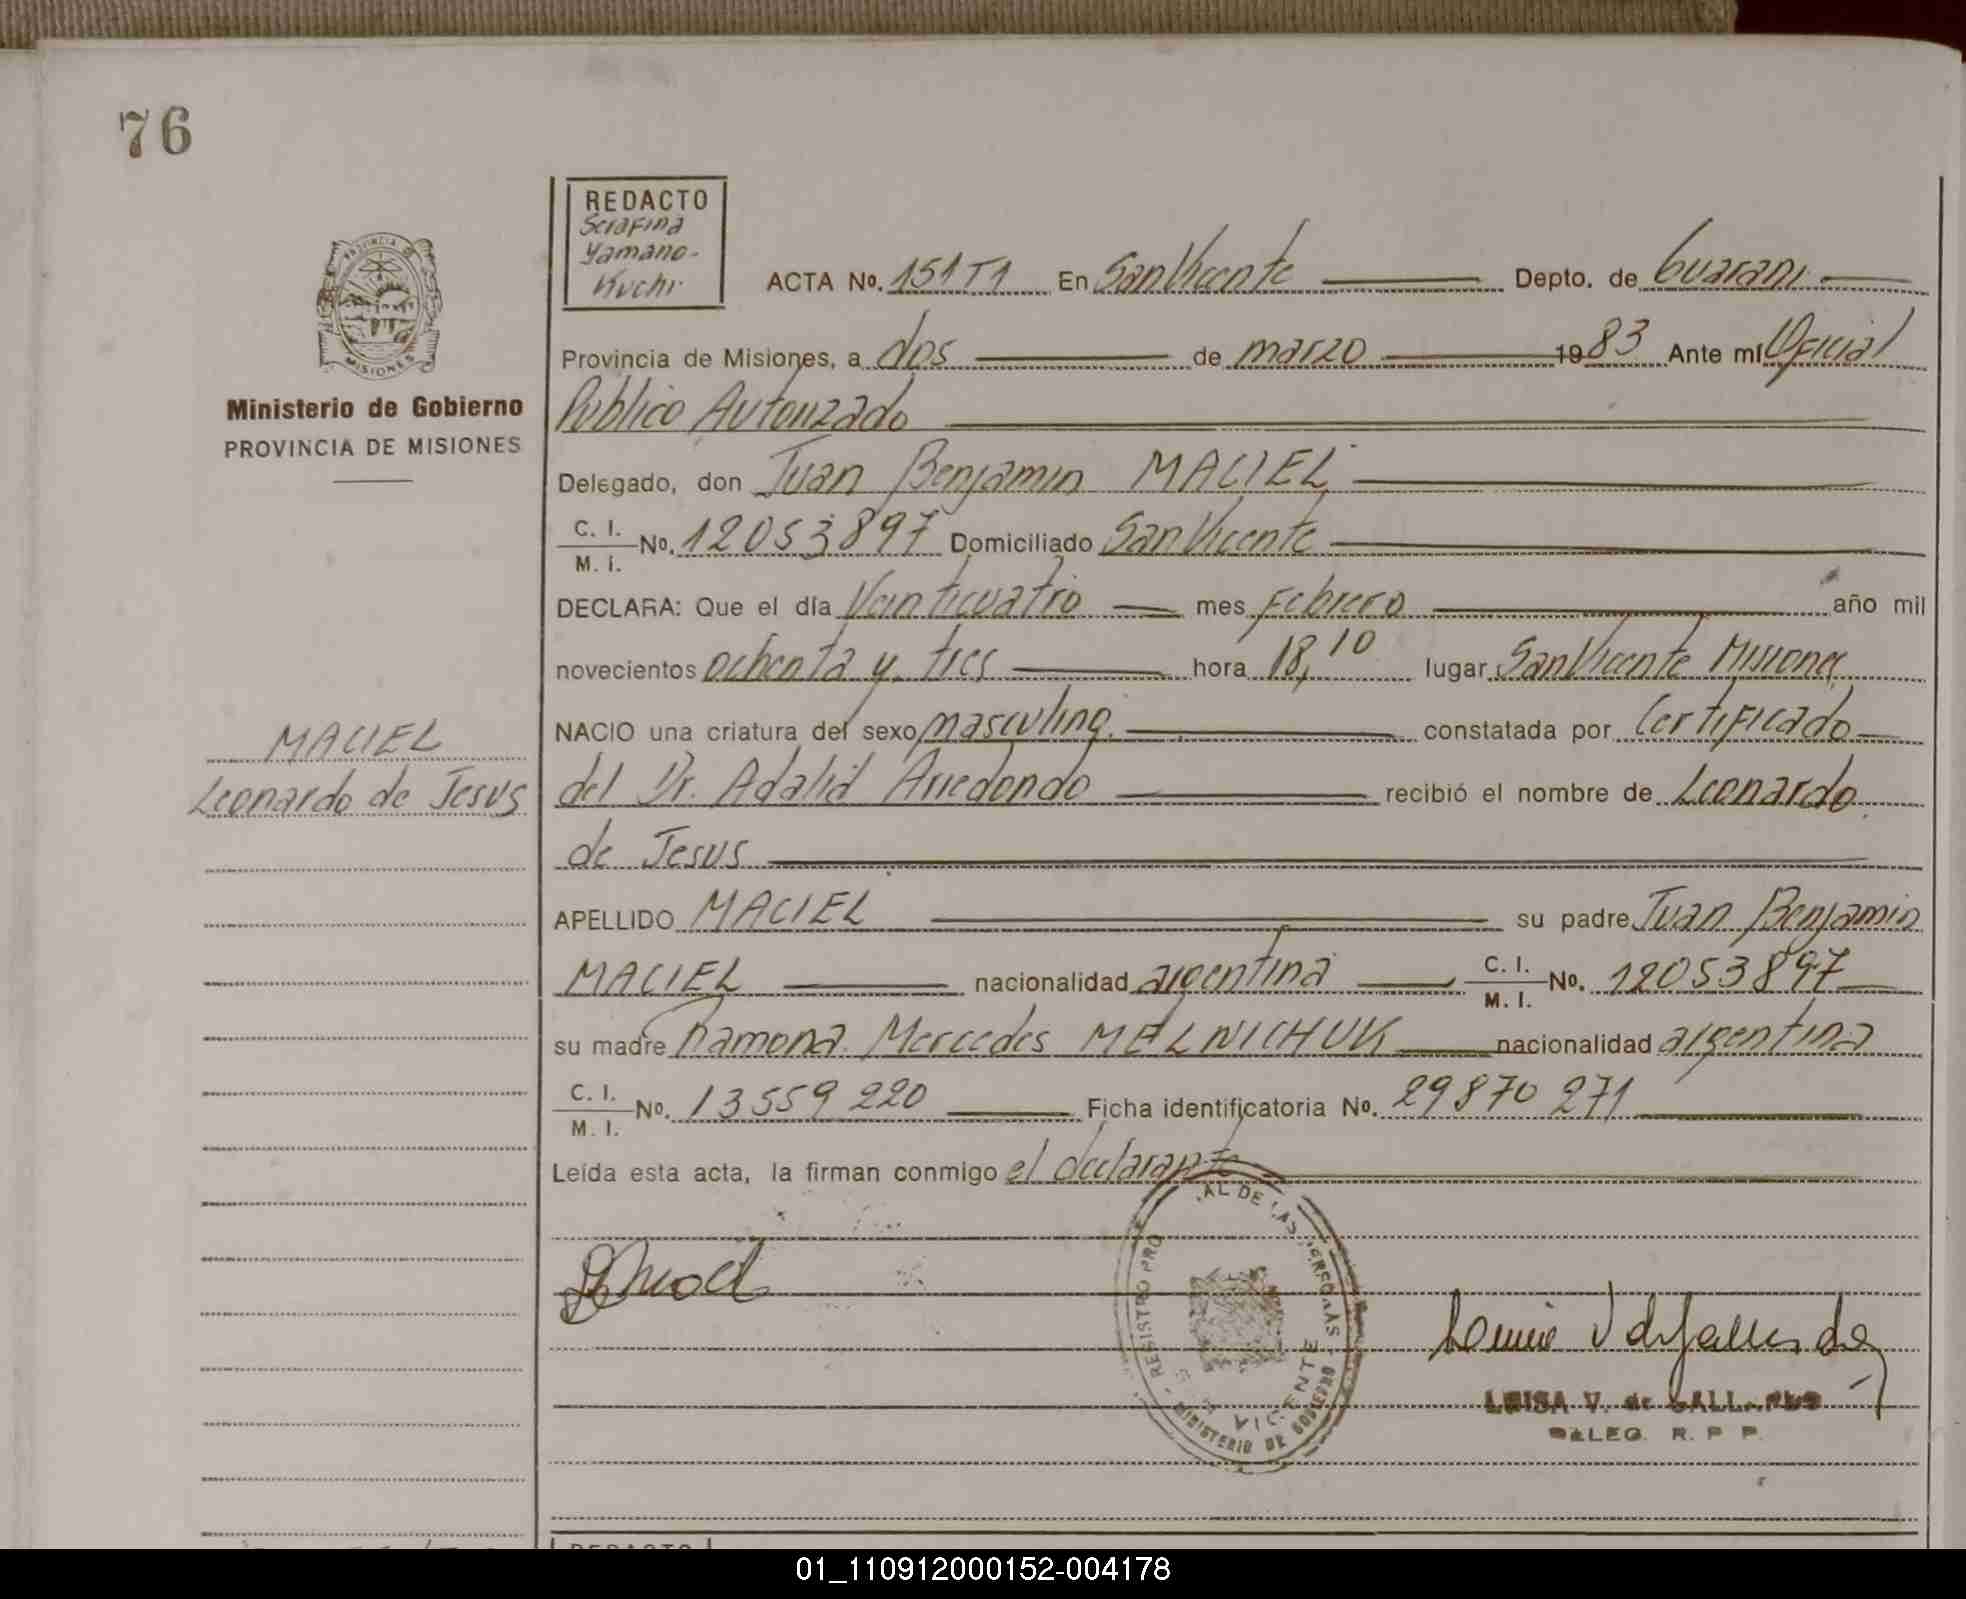 76
REDACTO
Serafina
Yamano-
Kuchi
PROVINCIA DE
MISIONES
Ministerio de Gobierno
PROVINCIA DE MISIONES
ACTA No. 151 T1 En San Vicente Depto. de Guarani
Provincia de Misiones, a dos de marzo 1983 Ante mí Oficial
Publico Autorizado
Delegado, don Juan Benjamin MACIEL
C. I.
M. I. No. 12053897 Domiciliado San Vicente
DECLARA: Que el día Veinticuatro mes Febrero año mil
novecientos ochenta y tres hora 18,10 lugar San Vicente Misiones
NACIO una criatura del sexo masculino. constatada por Certificado
del Dr. Adalid Arredondo recibió el nombre de Leonardo
de Jesus
MACIEL
Leonardo de Jesus
APELLIDO MACIEL su padre Juan Benjamin
MACIEL nacionalidad argentina C. I.
M. I. No. 12053897
su madre Ramona Mercedes MELNICHUK nacionalidad argentina
C. I.
M. I. No. 13559220 Ficha identificatoria No. 29870271
Leída esta acta, la firman conmigo el declarante
REGISTRO PRO AL DE LAS PERSONAS
VICENTE
MINISTERIO DE GOBIERNO
LUISA V. de GALLARDO
DELEG. R. P. P.
REDACTO
01_110912000152-004178